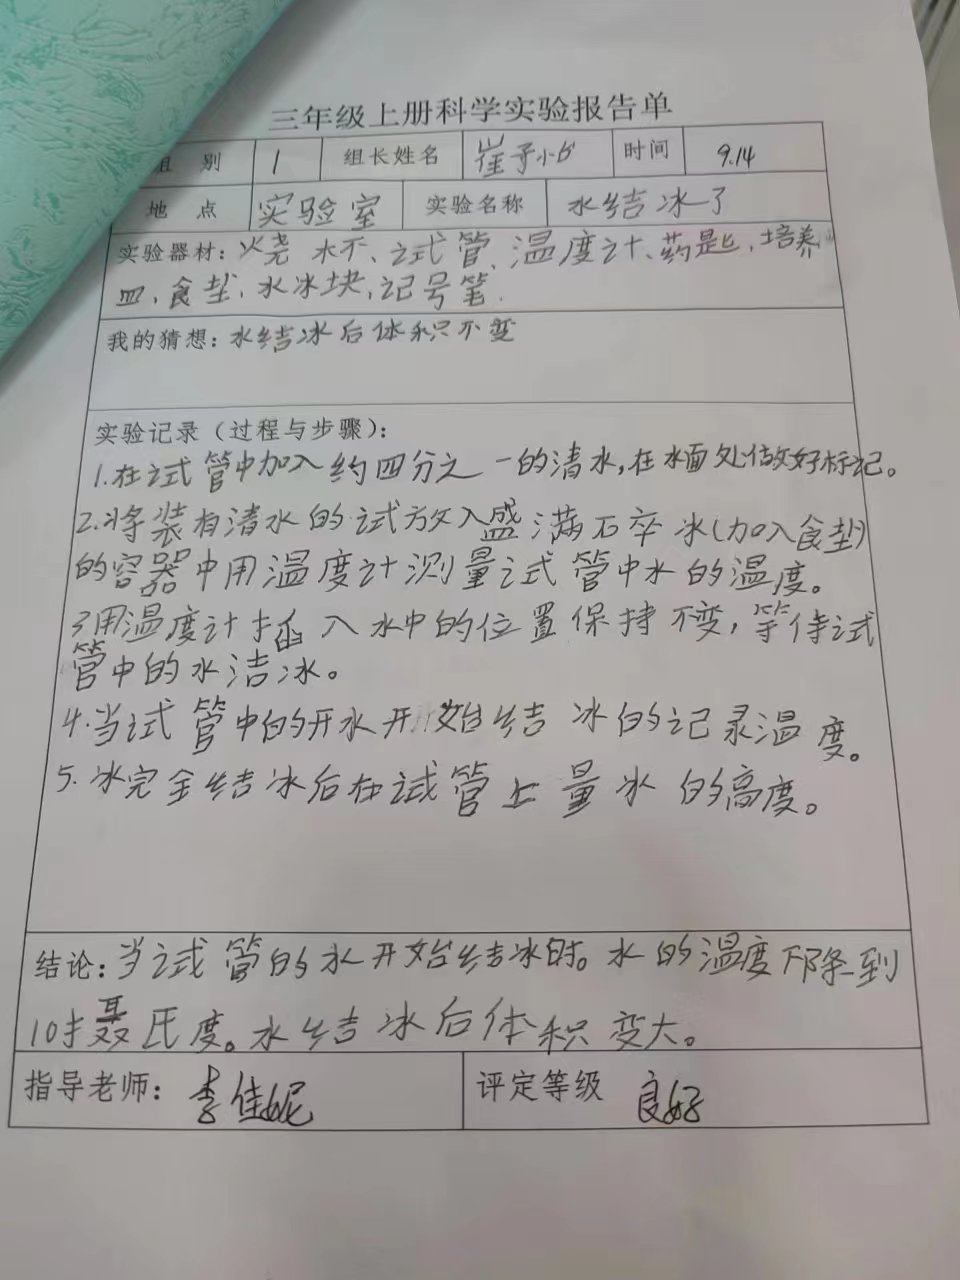 三年级上册科学实验报告单
组 别 1 组长姓名 崔子 时间 9.14
地 点 实验室 实验名称 水结冰了
实验器材：火烧杯、试管、温度计、药匙、培养
皿、食盐、水冰块、记号笔.
我的猜想：水结冰后体积不变
实验记录（过程与步骤）：
1.在试管中加入约四分之一的清水,在水面处做好标记。
2.将装有清水的试放入盛满石卒冰(加入食盐)
的容器中用温度计测量试管中水的温度。
3用温度计插入水中的位置保持不变,等待试
管中的水洁冰。
4.当试管中的开水开始结冰的记录温度。
5.冰完全结冰后在试管上量冰的高度。
结论：当试管的水开始结冰时。水的温度下降到
10寸聂氏度。水结冰后体积变大。
指导老师： 李佳妮 评定等级 良好